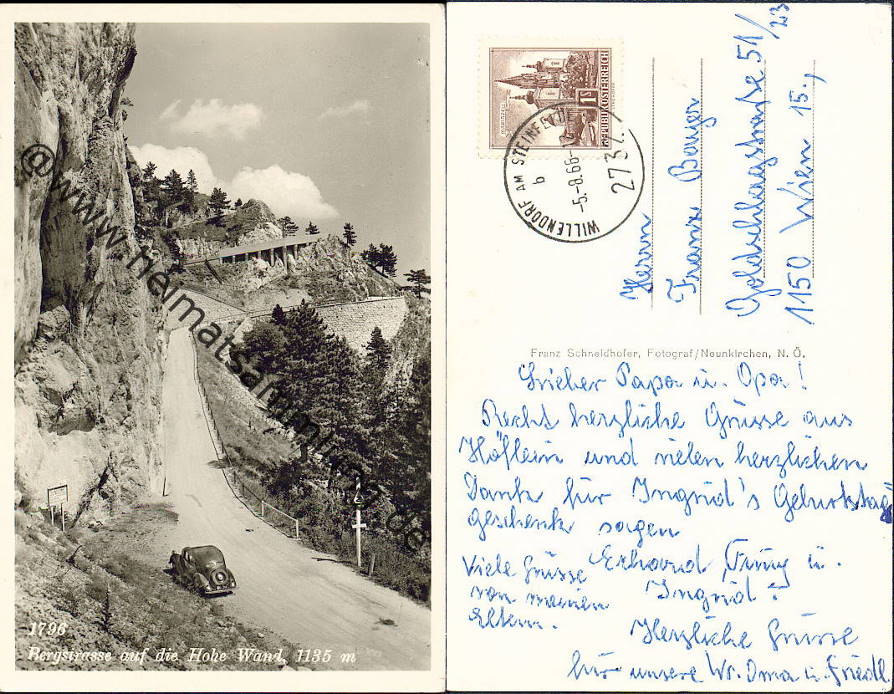 1796
Bergstrasse auf die Hohe Wand, 1135 m
@www.heimatsammlung.de
REPUBLIK ÖSTERREICH
1 S
WILLENDORF AM STEINFELD
b
-5.-8.66-12
2732
Herrn
Franz Bauer
Goldschlagstraße 51/23
1150 Wien 15.,
Franz Schneidhofer, Fotograf/Neunkirchen, N. Ö.
Lieber Papa u. Opa!
Recht herzliche Grüsse aus
Höflein und vielen herzlichen
Dank für Ingrid's Geburtstag
geschenk sagen
Viele Grüsse Erhard u.
von meinen Ingrid
Eltern.
Herzliche Grüsse
für unsere Wr. Oma u. Friedl